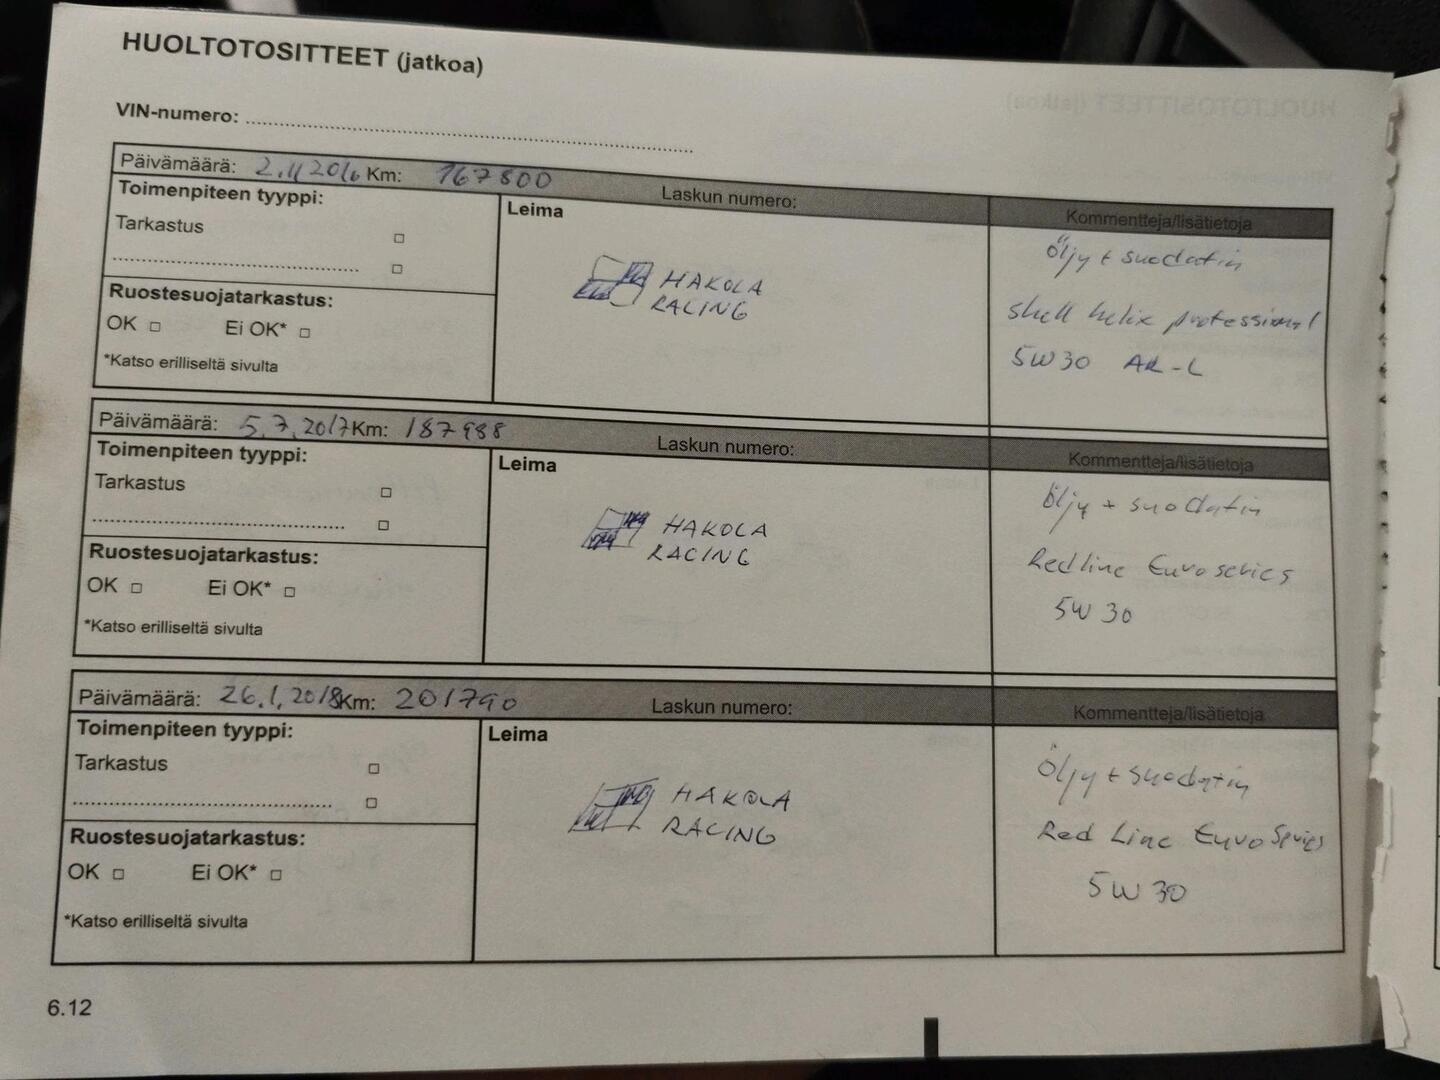 HUOLTOTOSITTEET (jatkoa)
VIN-numero:
Päivämäärä: 2.11.2016 Km: 167800
Laskun numero:
Toimenpiteen tyyppi:
Tarkastus
Ruostesuojatarkastus:
OK Ei OK*
*Katso erilliseltä sivulta
Leima
HAKOLA
RACING
Kommentteja/lisätietoja
Öljy + suodatin
shell helix professional
5W30 AR-L
Päivämäärä: 5.7.2017 Km: 187988
Laskun numero:
Toimenpiteen tyyppi:
Tarkastus
Ruostesuojatarkastus:
OK Ei OK*
*Katso erilliseltä sivulta
Leima
HAKOLA
RACING
Kommentteja/lisätietoja
Öljy + suodatin
Redline Euroseries
5W30
Päivämäärä: 26.1.2018 Km: 201790
Laskun numero:
Toimenpiteen tyyppi:
Tarkastus
Ruostesuojatarkastus:
OK Ei OK*
*Katso erilliseltä sivulta
Leima
HAKOLA
RACING
Kommentteja/lisätietoja
Öljy + suodatin
Red Line Euro Series
5W30
6.12